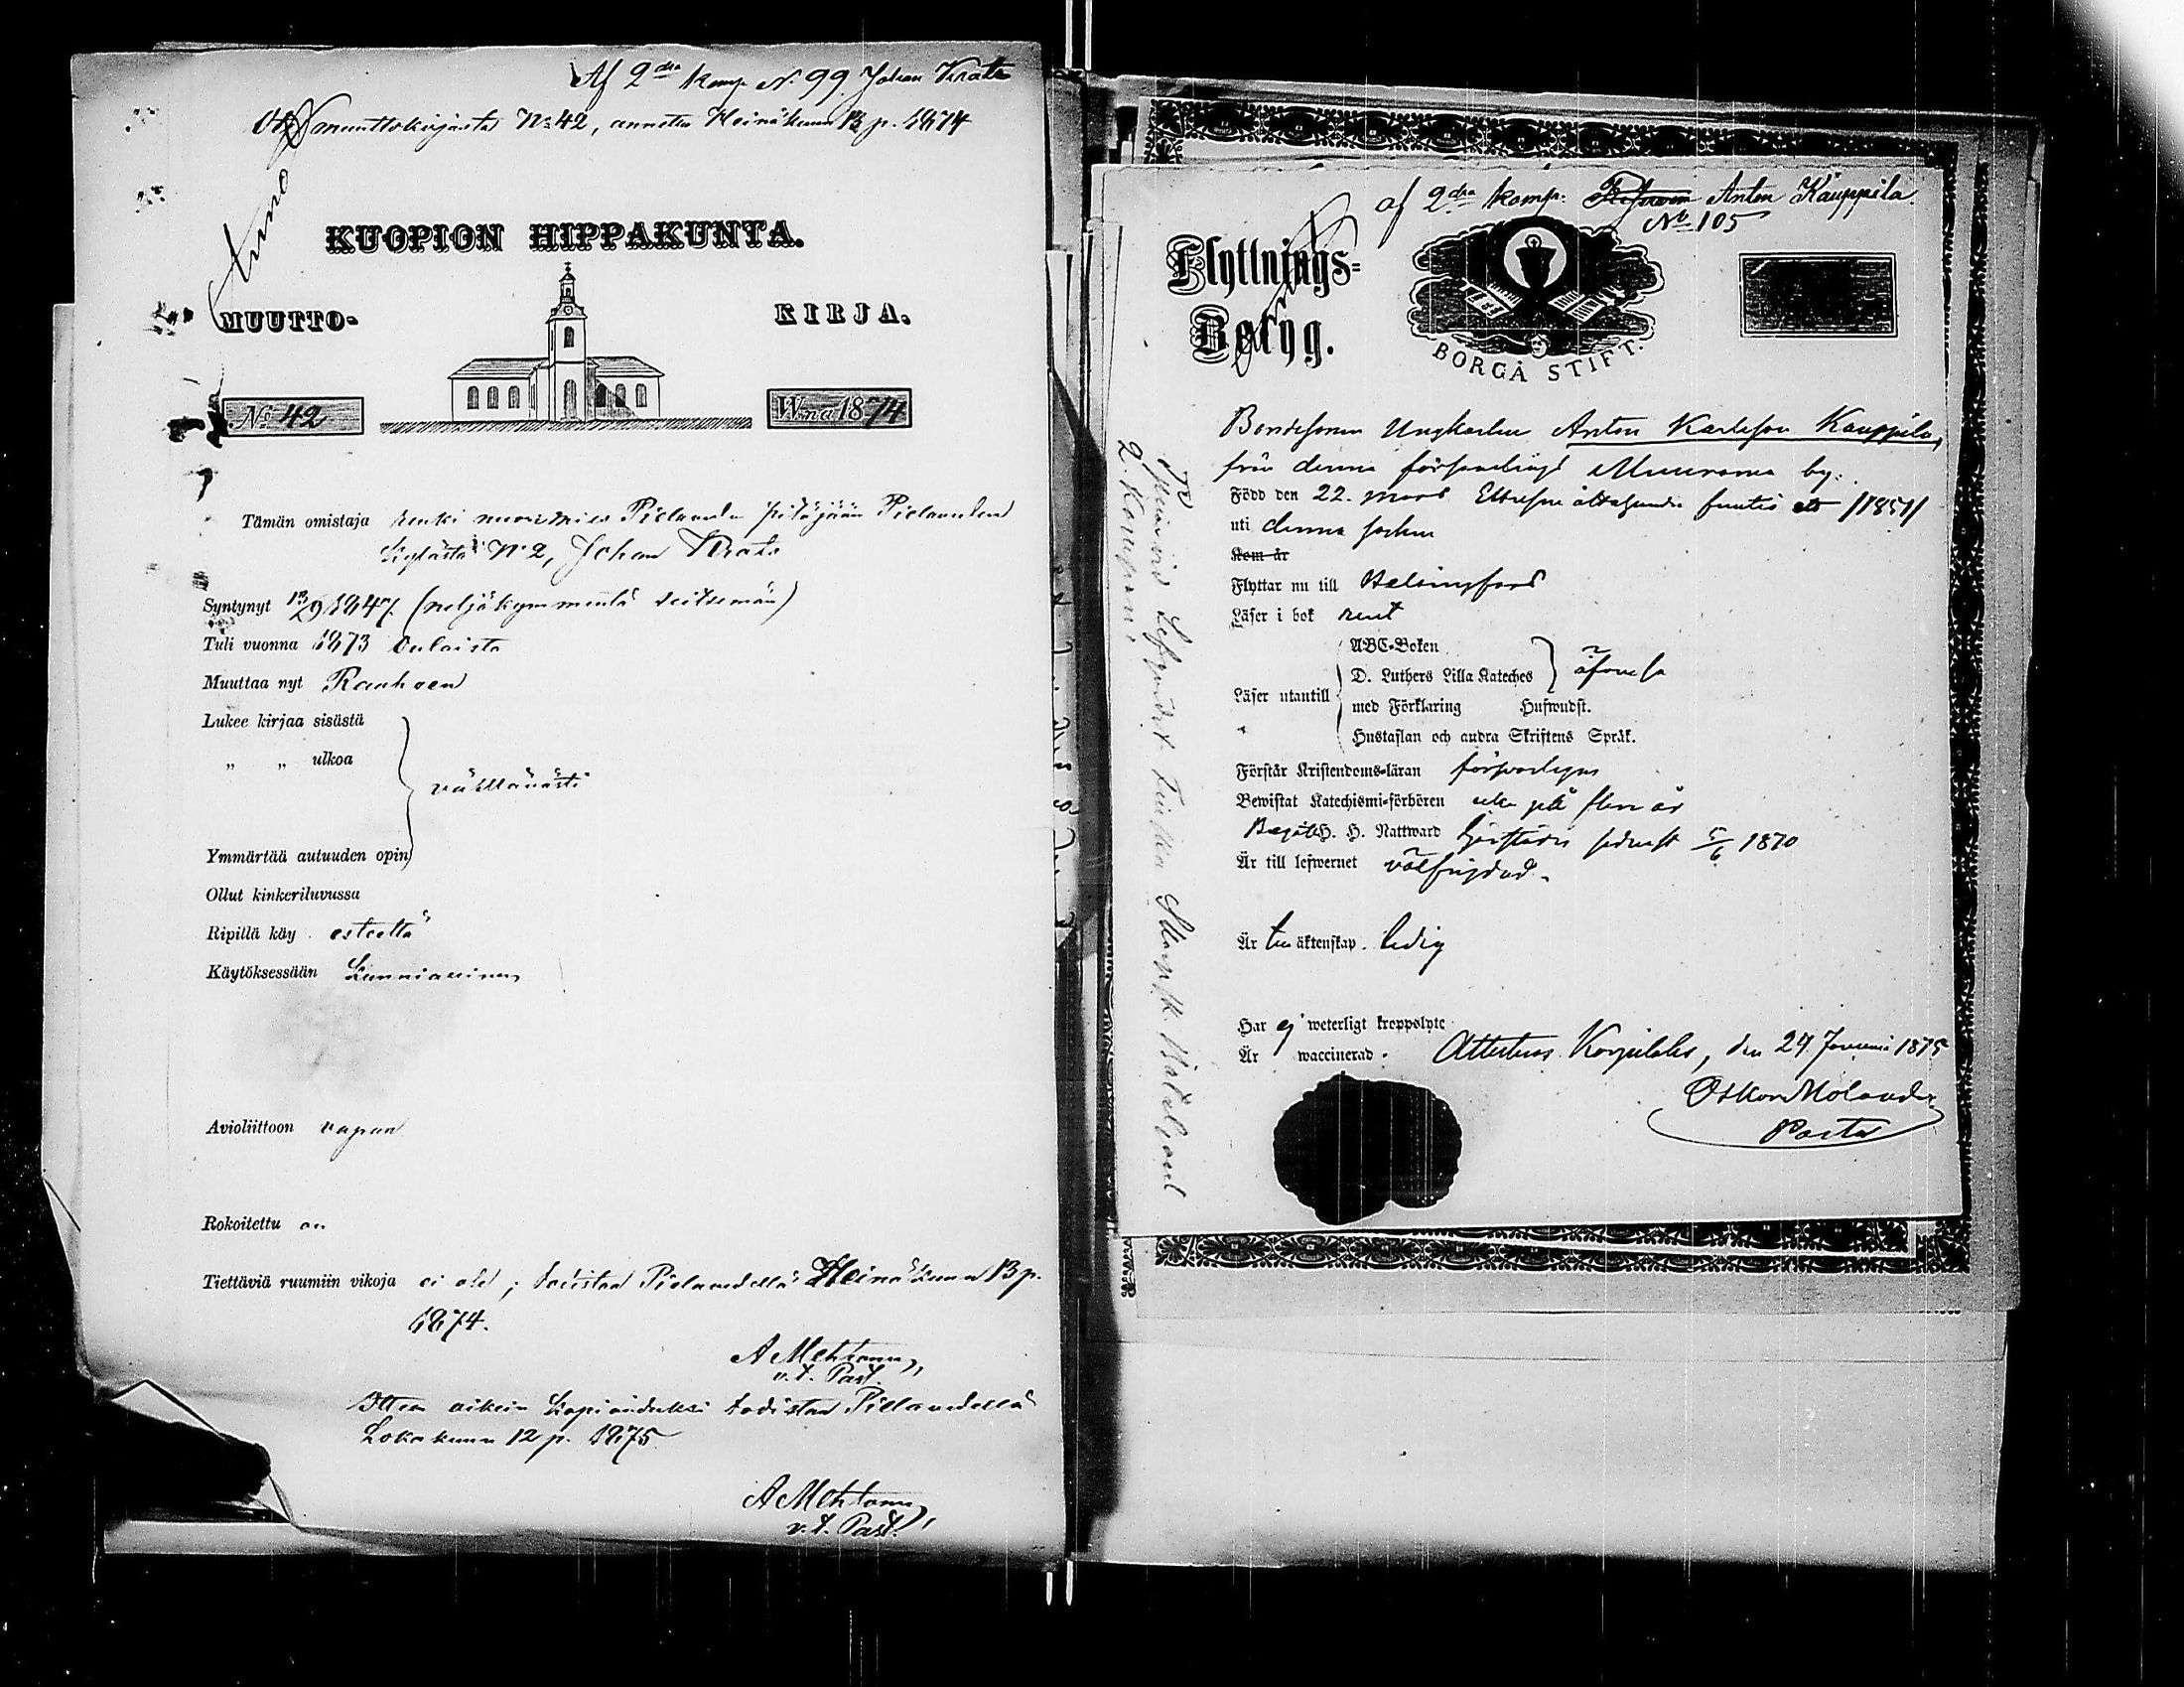 Af 2dra Komp No 99. Johan Krats
muuttokirjasta No 42, annettu Heinäkuun 13 p. 1874
KUOPION HIPPAKUNTA.
MUUTTO-
KIRJA.
No 42
Wna 1874
Tämän omistaja renki nuorimies Pielaveden pitäjään Pielaveden
kylästä No 2, Johan Krats
Syntynyt 13/9 1847. (neljäkymmentä seitsemän)
Tuli vuonna 1873 Oulaista
Muuttaa nyt
Lukee kirjaa sisästä
„ „ ulkoa
välttävästi
Ymmärtää autuuden opin
Ollut kinkeriluvussa
Ripillä käy esteettä
Käytöksessään Kunniallinen
Avioliittoon vapaa
Rokoitettu on
Tiettäviä ruumiin vikoja ei ole ; todistaa Pielavedellä Heinäkuun 13 p.
1874.
A Mehtonen
v. t. Past.
oikein kopioiduksi todistaa Pielavedellä
Lokakuun 12 p. 1875.
A Mehtonen
v. t. Past.
af 2dra Komp. Anton Kauppila
No 105
Flyttnings-
Betyg.
BORGÅ STIFT.
Bondesonen Ynglingen Anton Karlsson Kauppila,
från denna församlings Muurame by.
Född den 22. mars Ettusen åttahundra femtio ett /1851/
uti denna socken
Kom år
Flyttar nu till Helsingfors
Läser i bok rent
Läser utantill
ABC-Boken
D. Luthers Lilla Kateches
med Förklaring Hufwudst.
Hustaflan och andra Skriftens Språk.
äfvenså
Förstår Kristendoms-läran försvarligen
Bewistat Katechismi-förhören icke på flere år
Begått H. H. Nattward härstädes sednast 5/6 1870
Är till lefwernet välfrejdad.
Är till äktenskap. ledig
Har ej weterligt kroppslyte
Är waccinerad. Attesteras Korpilaks, den 24 Januari 1875
Oskar Moland
Pastor
2. Kompani.